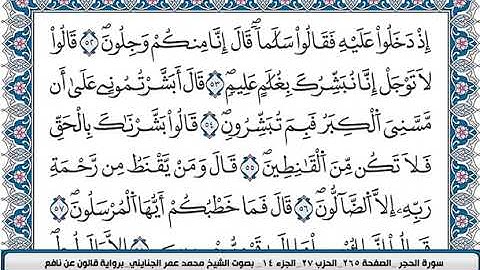 إِذْ دَخَلُواْ عَلَيْهِ فَقَالُواْ سَلَٰماٗ قَالَ إِنَّا مِنكُمْ وَجِلُونَ ۝٥٢ قَالُواْ
لَا تَوْجَلْ إِنَّا نُبَشِّرُكَ بِغُلَٰمٍ عَلِيمٖ ۝٥٣ قَالَ أَبَشَّرْتُمُونِي عَلَىٰ أَن
مَّسَّنِيَ اَ۬لْكِبَرُ فَبِمَ تُبَشِّرُونِ ۝٥٤ قَالُواْ بَشَّرْنَاكَ بِالْحَقِّ
فَلَا تَكُن مِّنَ اَ۬لْقَٰنِطِينَ ۝٥٥ قَالَ وَمَنْ يَّقْنَطُ مِن رَّحْمَةِ
رَبِّهِۦ إِلَّا اَ۬لضَّآلُّونَ ۝٥٦ قَالَ فَمَا خَطْبُكُمْ أَيُّهَا اَ۬لْمُرْسَلُونَ ۝٥٧
سورة الحجر _الصفحة ٢٦٥_الحزب ٢٧_الجزء ١٤_ بصوت الشيخ محمد عمر الجنايني_برواية قالون عن نافع